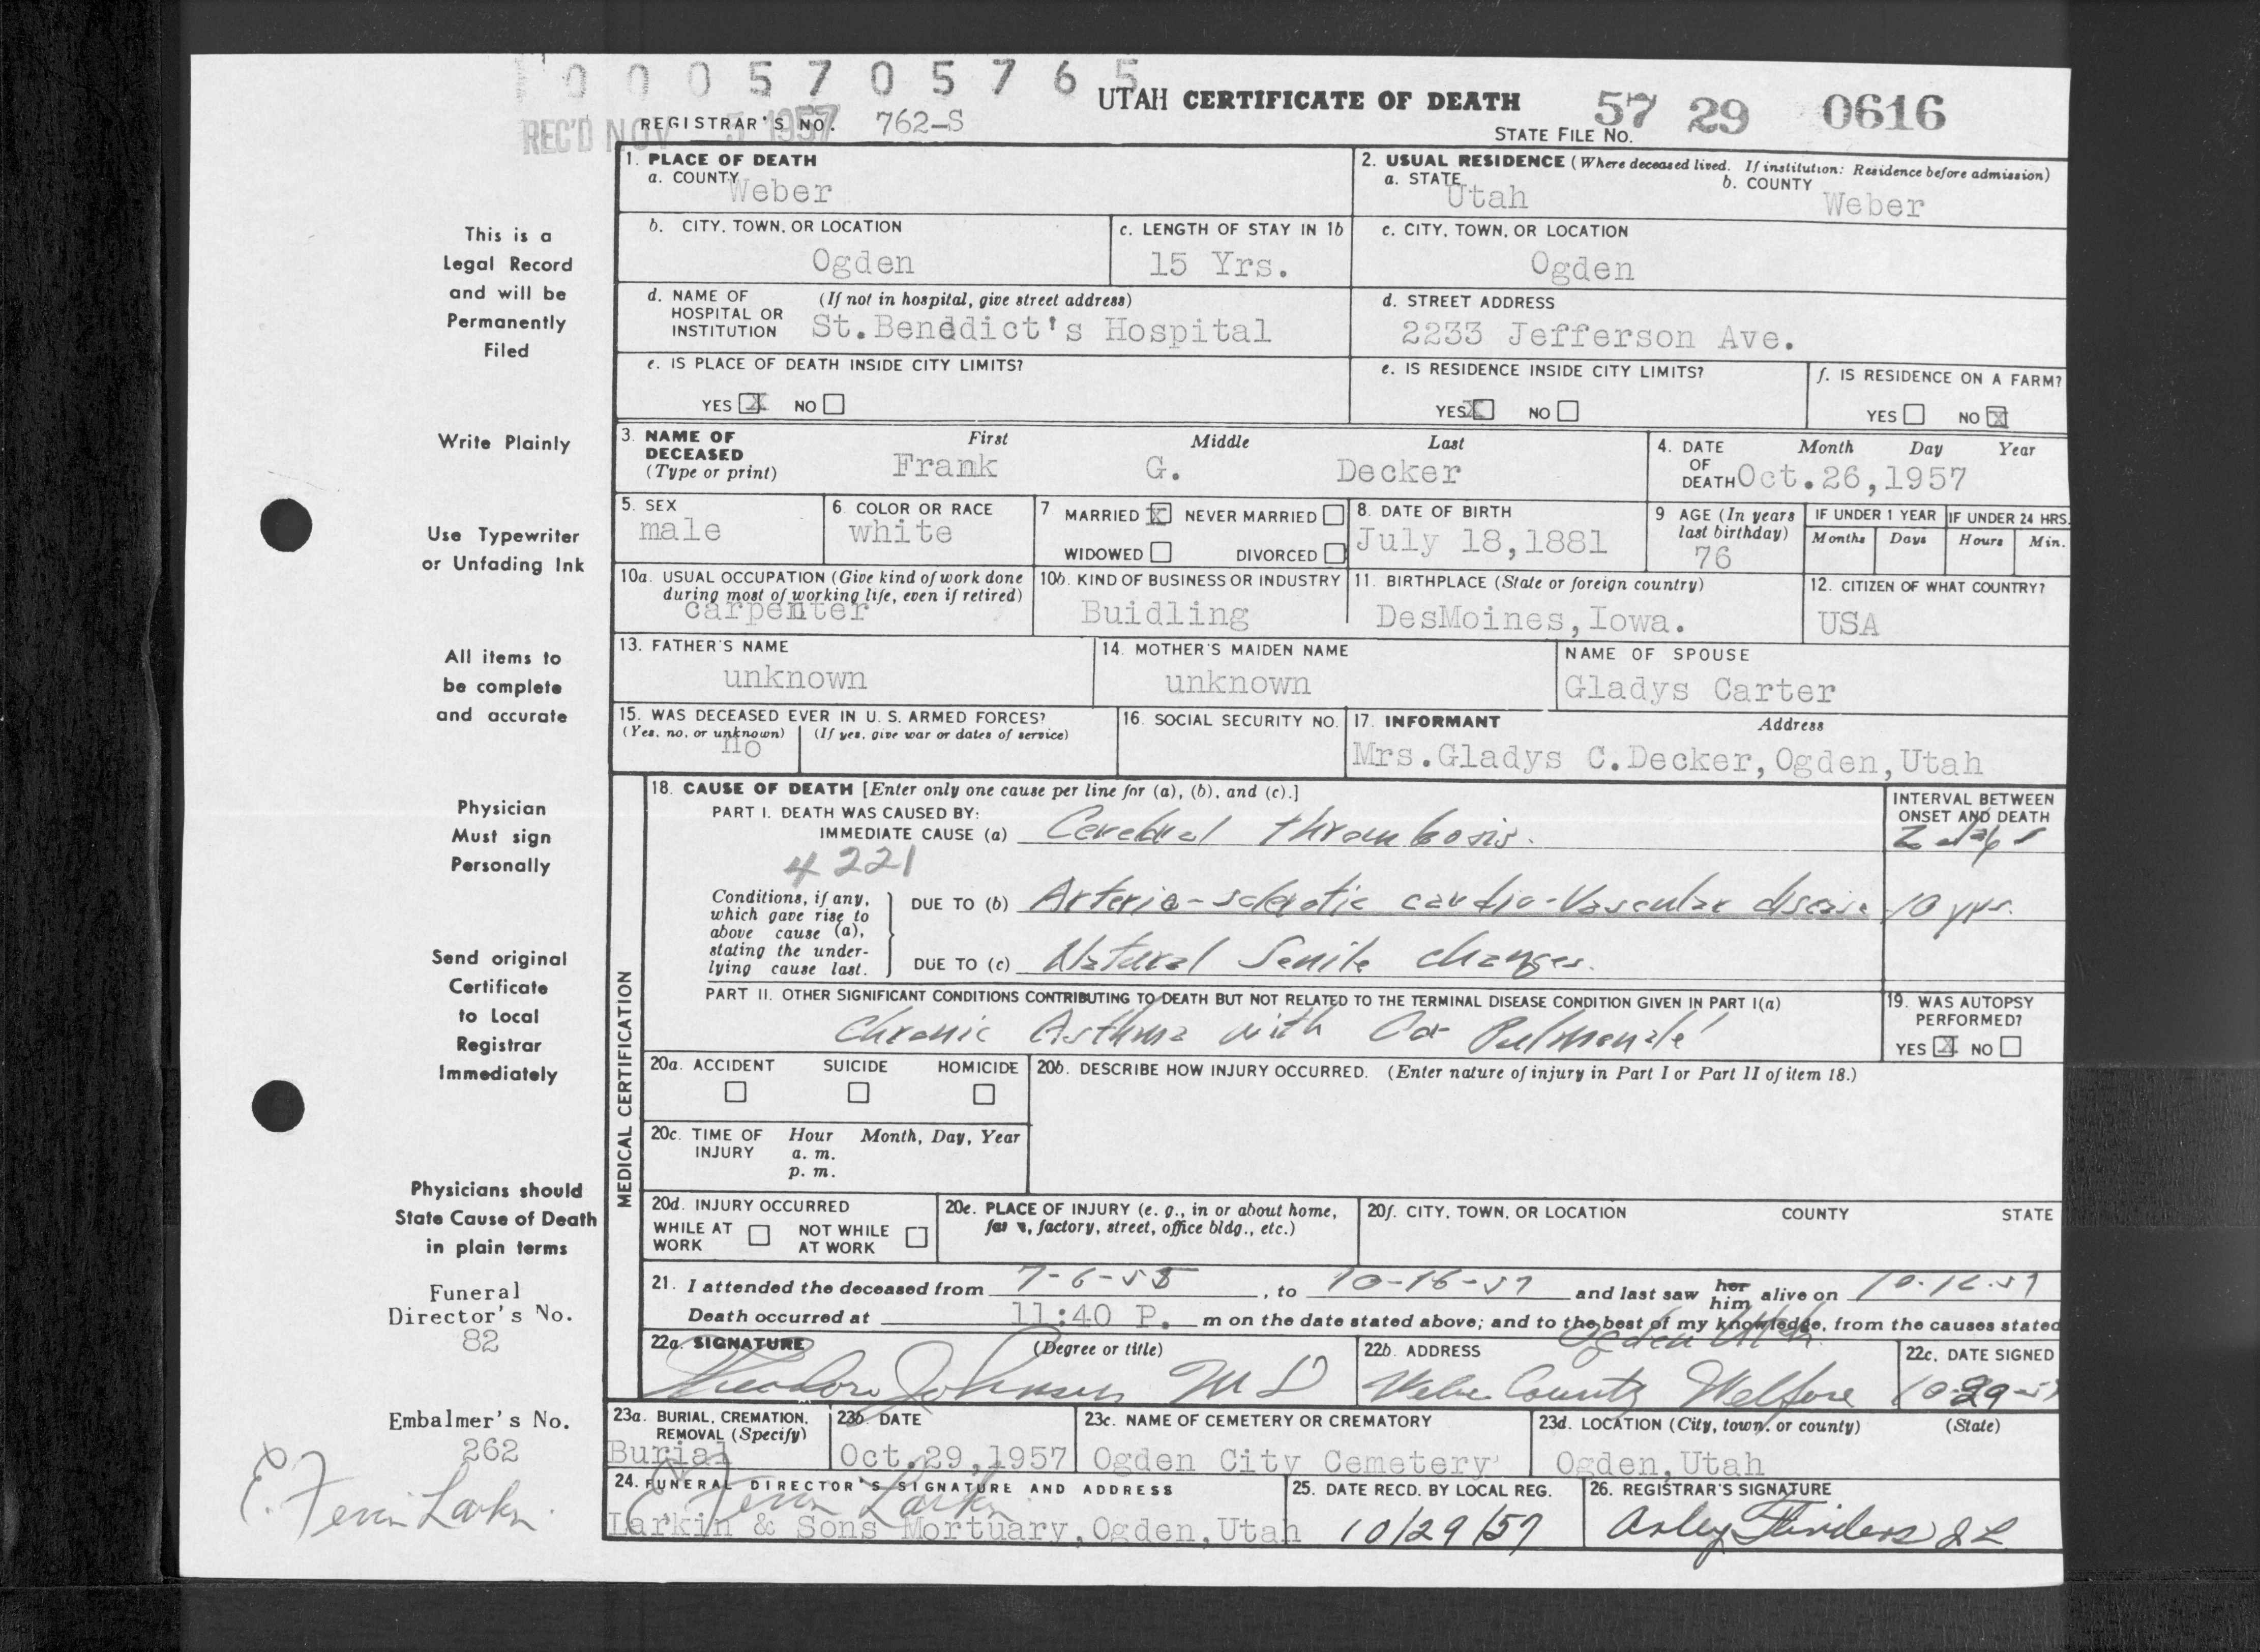 0 0 0 5 7 0 5 7 6 5
UTAH CERTIFICATE OF DEATH
57 29 0616
REC'D NOV 5 1957
REGISTRAR'S NO. 762-S
STATE FILE NO.
1. PLACE OF DEATH
a. COUNTY Weber
2. USUAL RESIDENCE (Where deceased lived. If institution: Residence before admission)
a. STATE Utah b. COUNTY Weber
b. CITY, TOWN, OR LOCATION Ogden
c. LENGTH OF STAY IN 1b 15 Yrs.
c. CITY, TOWN, OR LOCATION Ogden
d. NAME OF HOSPITAL OR INSTITUTION (If not in hospital, give street address) St.Benddict's Hospital
d. STREET ADDRESS 2233 Jefferson Ave.
e. IS PLACE OF DEATH INSIDE CITY LIMITS?
YES X NO
e. IS RESIDENCE INSIDE CITY LIMITS?
YES X NO
f. IS RESIDENCE ON A FARM?
YES NO X
3. NAME OF DECEASED (Type or print)
First Middle Last
Frank G. Decker
4. DATE OF DEATH Month Day Year
Oct.26,1957
5. SEX male
6. COLOR OR RACE white
7 MARRIED X NEVER MARRIED
WIDOWED DIVORCED
8. DATE OF BIRTH July 18,1881
9 AGE (In years last birthday) 76
IF UNDER 1 YEAR Months Days
IF UNDER 24 HRS. Hours Min.
10a. USUAL OCCUPATION (Give kind of work done during most of working life, even if retired) carpenter
10b. KIND OF BUSINESS OR INDUSTRY Buidling
11. BIRTHPLACE (State or foreign country) DesMoines,Iowa.
12. CITIZEN OF WHAT COUNTRY? USA
13. FATHER'S NAME unknown
14. MOTHER'S MAIDEN NAME unknown
NAME OF SPOUSE Gladys Carter
15. WAS DECEASED EVER IN U. S. ARMED FORCES?
(Yes, no, or unknown) no (If yes, give war or dates of service)
16. SOCIAL SECURITY NO.
17. INFORMANT Address
Mrs.Gladys C.Decker,Ogden,Utah
MEDICAL CERTIFICATION
18. CAUSE OF DEATH [Enter only one cause per line for (a), (b), and (c).]
INTERVAL BETWEEN ONSET AND DEATH
PART I. DEATH WAS CAUSED BY:
IMMEDIATE CAUSE (a) Cerebral thrombosis. 2 days
4221
Conditions, if any, which gave rise to above cause (a), stating the underlying cause last.
DUE TO (b) Arterio-sclerotic cardio-Vascular disease 10 yrs.
DUE TO (c) Natural Senile changes.
PART II. OTHER SIGNIFICANT CONDITIONS CONTRIBUTING TO DEATH BUT NOT RELATED TO THE TERMINAL DISEASE CONDITION GIVEN IN PART I(a)
Chronic Asthma with Cor Pulmonale
19. WAS AUTOPSY PERFORMED?
YES X NO
20a. ACCIDENT SUICIDE HOMICIDE
20b. DESCRIBE HOW INJURY OCCURRED. (Enter nature of injury in Part I or Part II of item 18.)
20c. TIME OF INJURY Hour Month, Day, Year
a. m.
p. m.
20d. INJURY OCCURRED
WHILE AT WORK NOT WHILE AT WORK
20e. PLACE OF INJURY (e. g., in or about home, factory, street, office bldg., etc.)
20f. CITY, TOWN, OR LOCATION COUNTY STATE
21. I attended the deceased from 7-6-55, to 10-16-57 and last saw her him alive on
Death occurred at 11:40 P. m on the date stated above; and to the best of my knowledge, from the causes stated
22a. SIGNATURE (Degree or title)
Theodore Johnson M D
22b. ADDRESS Ogden Utah.
Weber County Welfare
22c. DATE SIGNED 10-29-57
23a. BURIAL, CREMATION, REMOVAL (Specify) Burial
23b. DATE Oct.29,1957
23c. NAME OF CEMETERY OR CREMATORY Ogden City Cemetery
23d. LOCATION (City, town, or county) (State) Ogden,Utah
24. FUNERAL DIRECTOR'S SIGNATURE AND ADDRESS
E. Ferrin Larkin
Larkin & Sons Mortuary,Ogden,Utah
25. DATE RECD. BY LOCAL REG. 10/29/57
26. REGISTRAR'S SIGNATURE Arley Flinders
This is a
Legal Record
and will be
Permanently
Filed
Write Plainly
Use Typewriter
or Unfading Ink
All items to
be complete
and accurate
Physician
Must sign
Personally
Send original
Certificate
to Local
Registrar
Immediately
Physicians should
State Cause of Death
in plain terms
Funeral
Director's No.
82
Embalmer's No.
262
E. Ferrin Larkin.